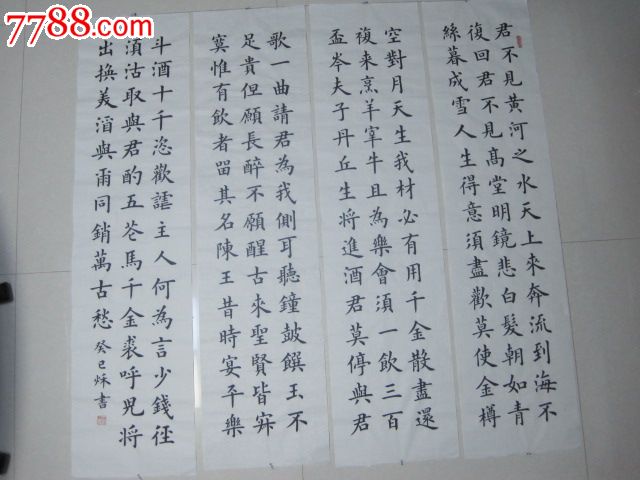 7788.com
君不見黃河之水天上來奔流到海不
復回君不見髙堂明鏡悲白髮朝如青
絲暮成雪人生得意須盡歡莫使金樽
空對月天生我材必有用千金散盡還
復来烹羊宰牛且為樂會須一飲三百
盃岑夫子丹丘生将進酒君莫停與君
歌一曲請君為我側耳聽鐘皷饌玉不
足貴但願長醉不願醒古來聖賢皆寂
寞惟有飲者留其名陳王昔時宴平樂
斗酒十千恣歡謔主人何為言少錢徑
湏沽取與君酌五花馬千金裘呼兒将
出換美酒與爾同銷萬古愁癸巳秋書